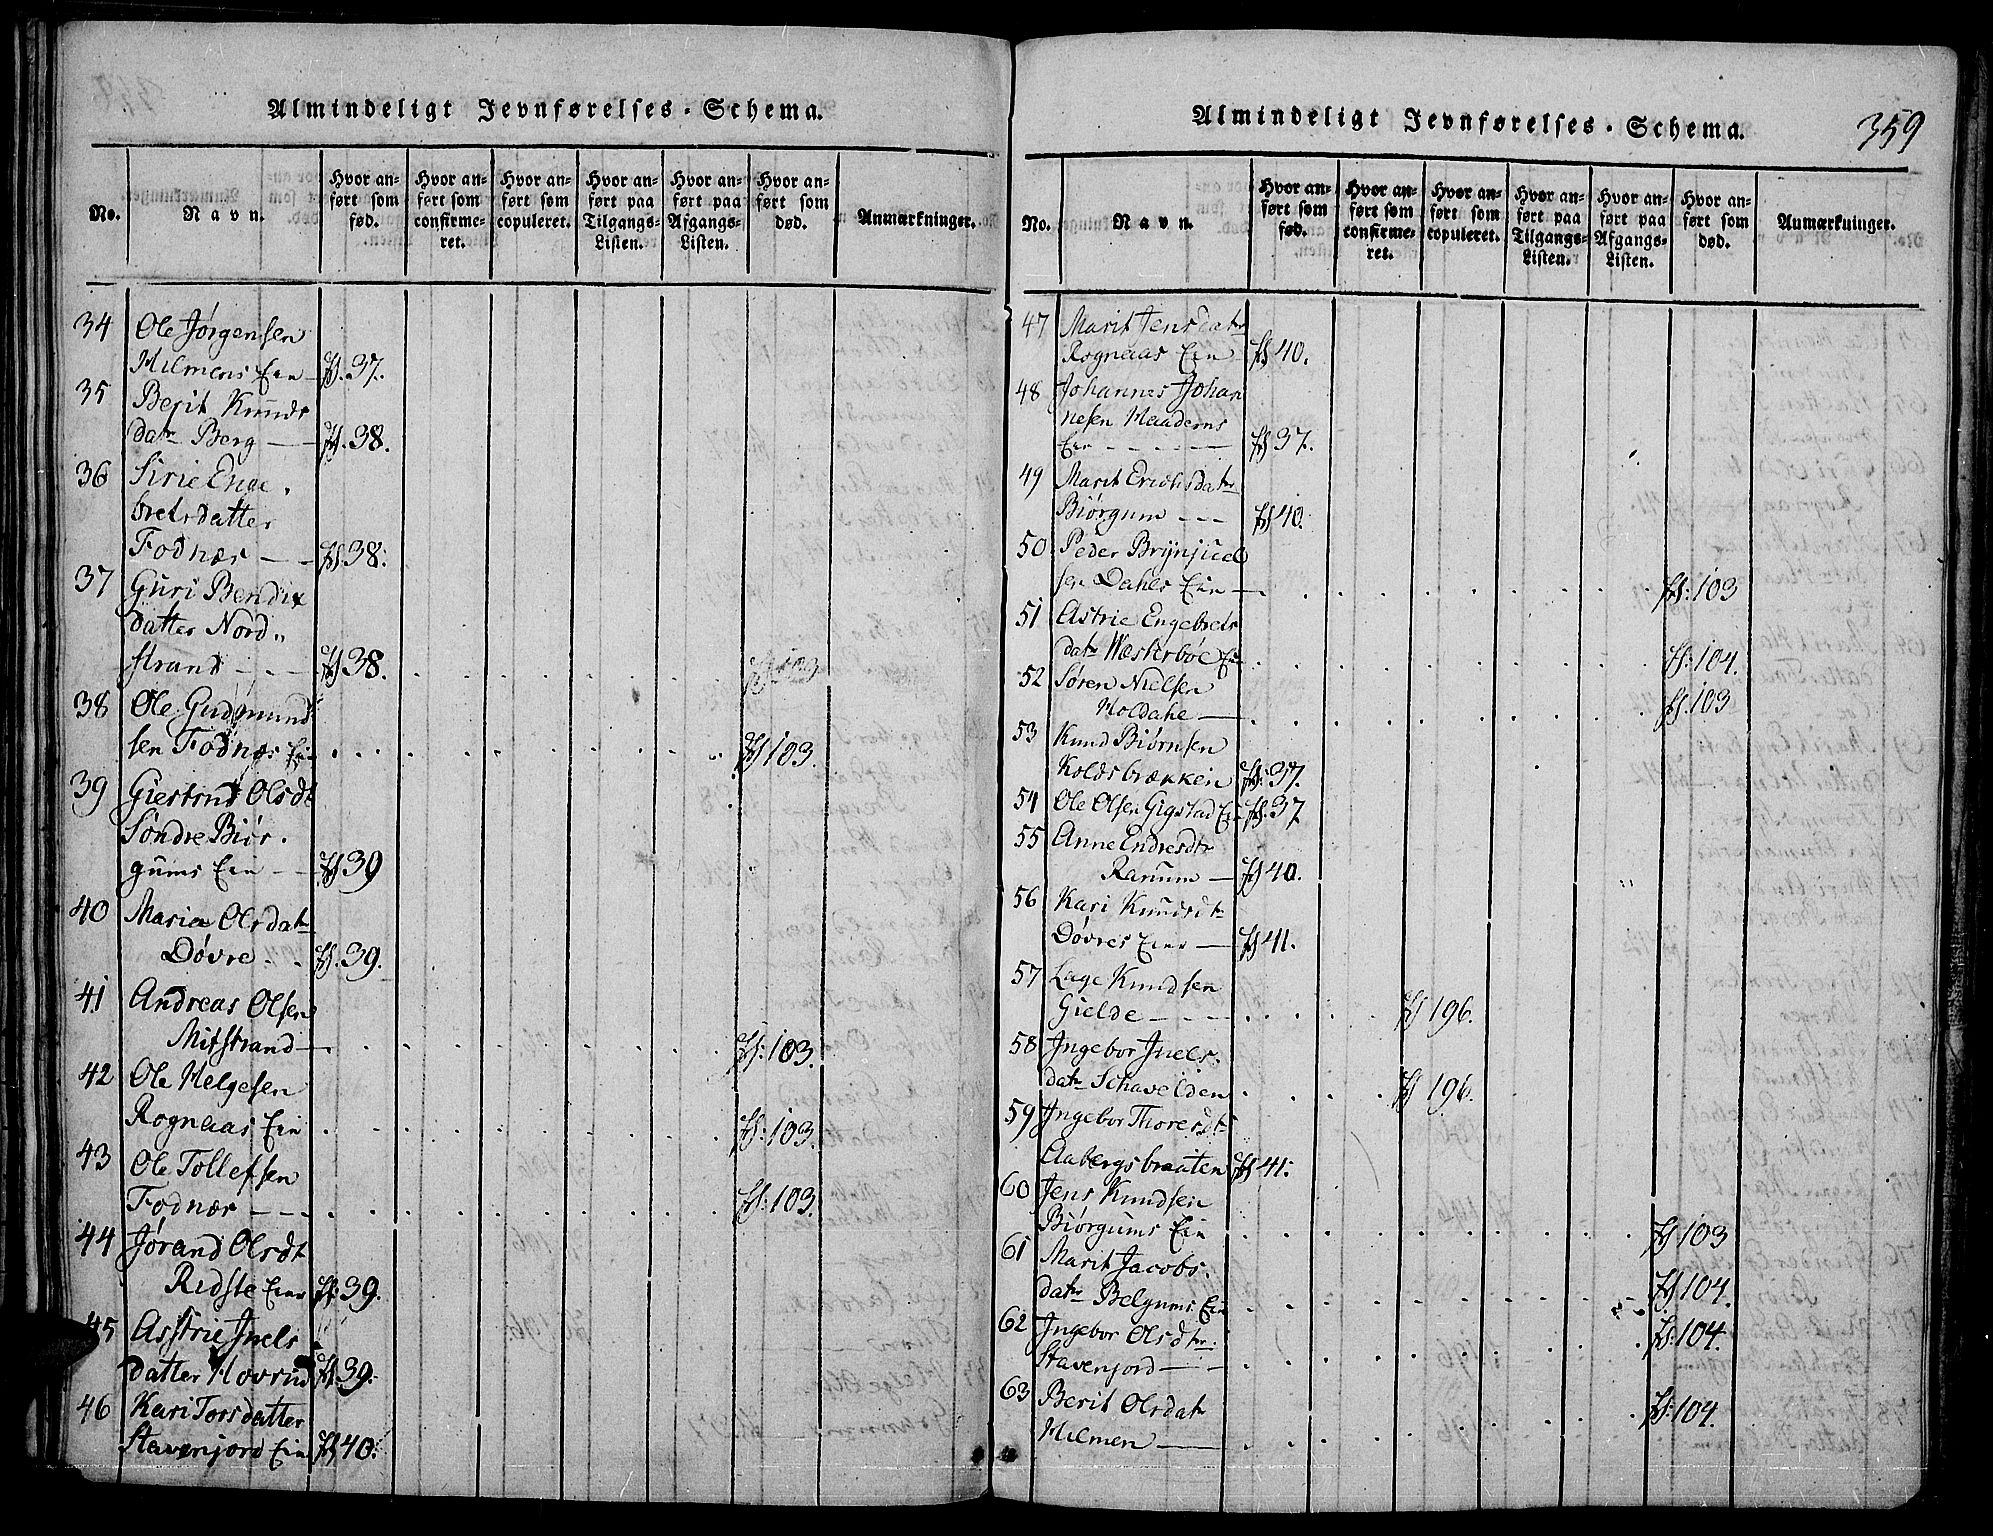 Almindeligt Jevnførelses-Schema.
No.
Navn.
Hvor anført som fød.
Hvor anført som confirmeret.
Hvor anført som copuleret.
Hvor anført paa Tilgangs-Listen.
Hvor anført paa Afgangs-Listen.
Hvor anført som død.
Anmærkninger.
34 Ole Jørgensen
Hilmens Eie - fs. 37.
35 Berit Knuds
datr Berg - fs. 38.
36 Sirie Enge
bretsdatter
Fodnæs - - fs 38:
37 Guri Bendix
datter Nord„
strand - - fs 38.
38 Ole Gudmund
sen Fodnæs Eie fs 103.
39 Giertrud Olsdt
Søndre Biør.
gums Eie - - fs 39
40 Maria Olsdatr
Døvre - . fs. 39.
41 Andreas Olsen
Midstrand - fs: 103.
42 Ole Helgesen
Rognaas Eie fs: 103.
43 Ole Tollefsen
Fodnæs - - - fs: 103.
44 Jørand Olsdt
Ridste Eie fs: 39.
45 Astrie Juels
datter Hovrud fs. 39.
46 Kari Torsdatter
Stavenjord Eie fs 40.
Almindeligt Jevnførelses-Schema.
359
No.
Navn.
Hvor anført som fød.
Hvor anført som confirmeret.
Hvor anført som copuleret.
Hvor anført paa Tilgangs-Listen.
Hvor anført paa Afgangs-Listen.
Hvor anført som død.
Anmærkninger.
47 Marit Jensdatr
Rognaas Eie fs 40.
48 Johannes Johan
nesen Haadems
Eie - - - - - fs 37.
49 Marit Erichsdatr
Biørgum - - - fs 40.
50 Peder Brynjuel
sen Dahls Eie - fs: 103
51 Astrie Engebrets
datr Wæsterbøe Eie fs: 104.
52 Søren Nielsen
Holdahe - fs. 103
53 Knud Biørnsen
Koldsbrækken fs: 37.
54 Ole Olsen Gigstad Eie fs. 37
55 Anne Endresdtr
Ranum - fs 40.
56 Kari Knudsdtr
Døvres Eie - fs 41.
57 Lage Knudsen
Gielde - - - - fs 196.
58 Ingebor Juels.
datr Schavelden fs 196.
59 Ingebor Thoresdtr
Aabergsbraaten fs 41:
60 Jens Knudsen
Biørgums Eie fs 103
61 Marit Jacobs.
datr Belgums Eie fs 104.
62 Ingebor Olsdtr:
Stavenjord - - fs: 104.
63 Berit Olsdatr
Hilmen - fs: 104.